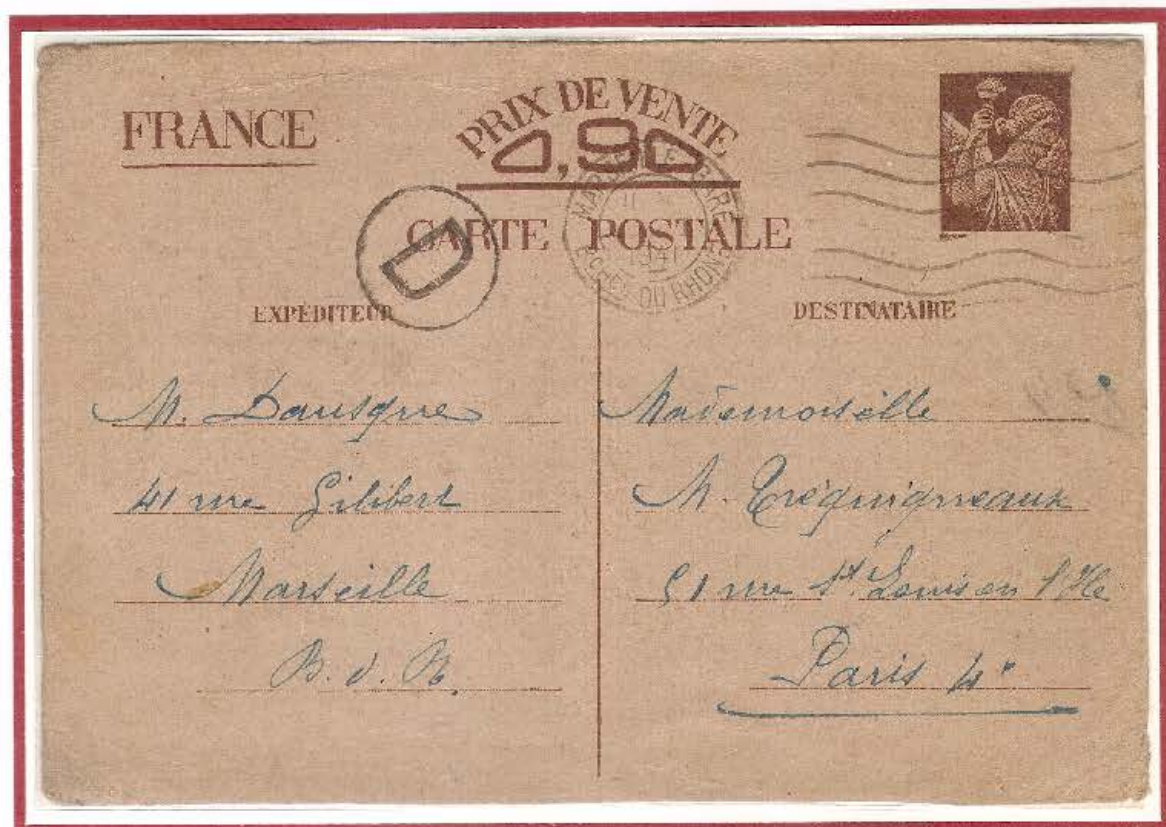 FRANCE
PRIX DE VENTE
0,90
CARTE POSTALE
D
MARSEILLE GARE
1941
BCHES DU RHONE
EXPÉDITEUR
M. Dausque
41 rue Gilibert
Marseille
B. d. R.
DESTINATAIRE
Mademoiselle
M. Tréguigneaux
51 rue St Louis en l'Ile
Paris 4e